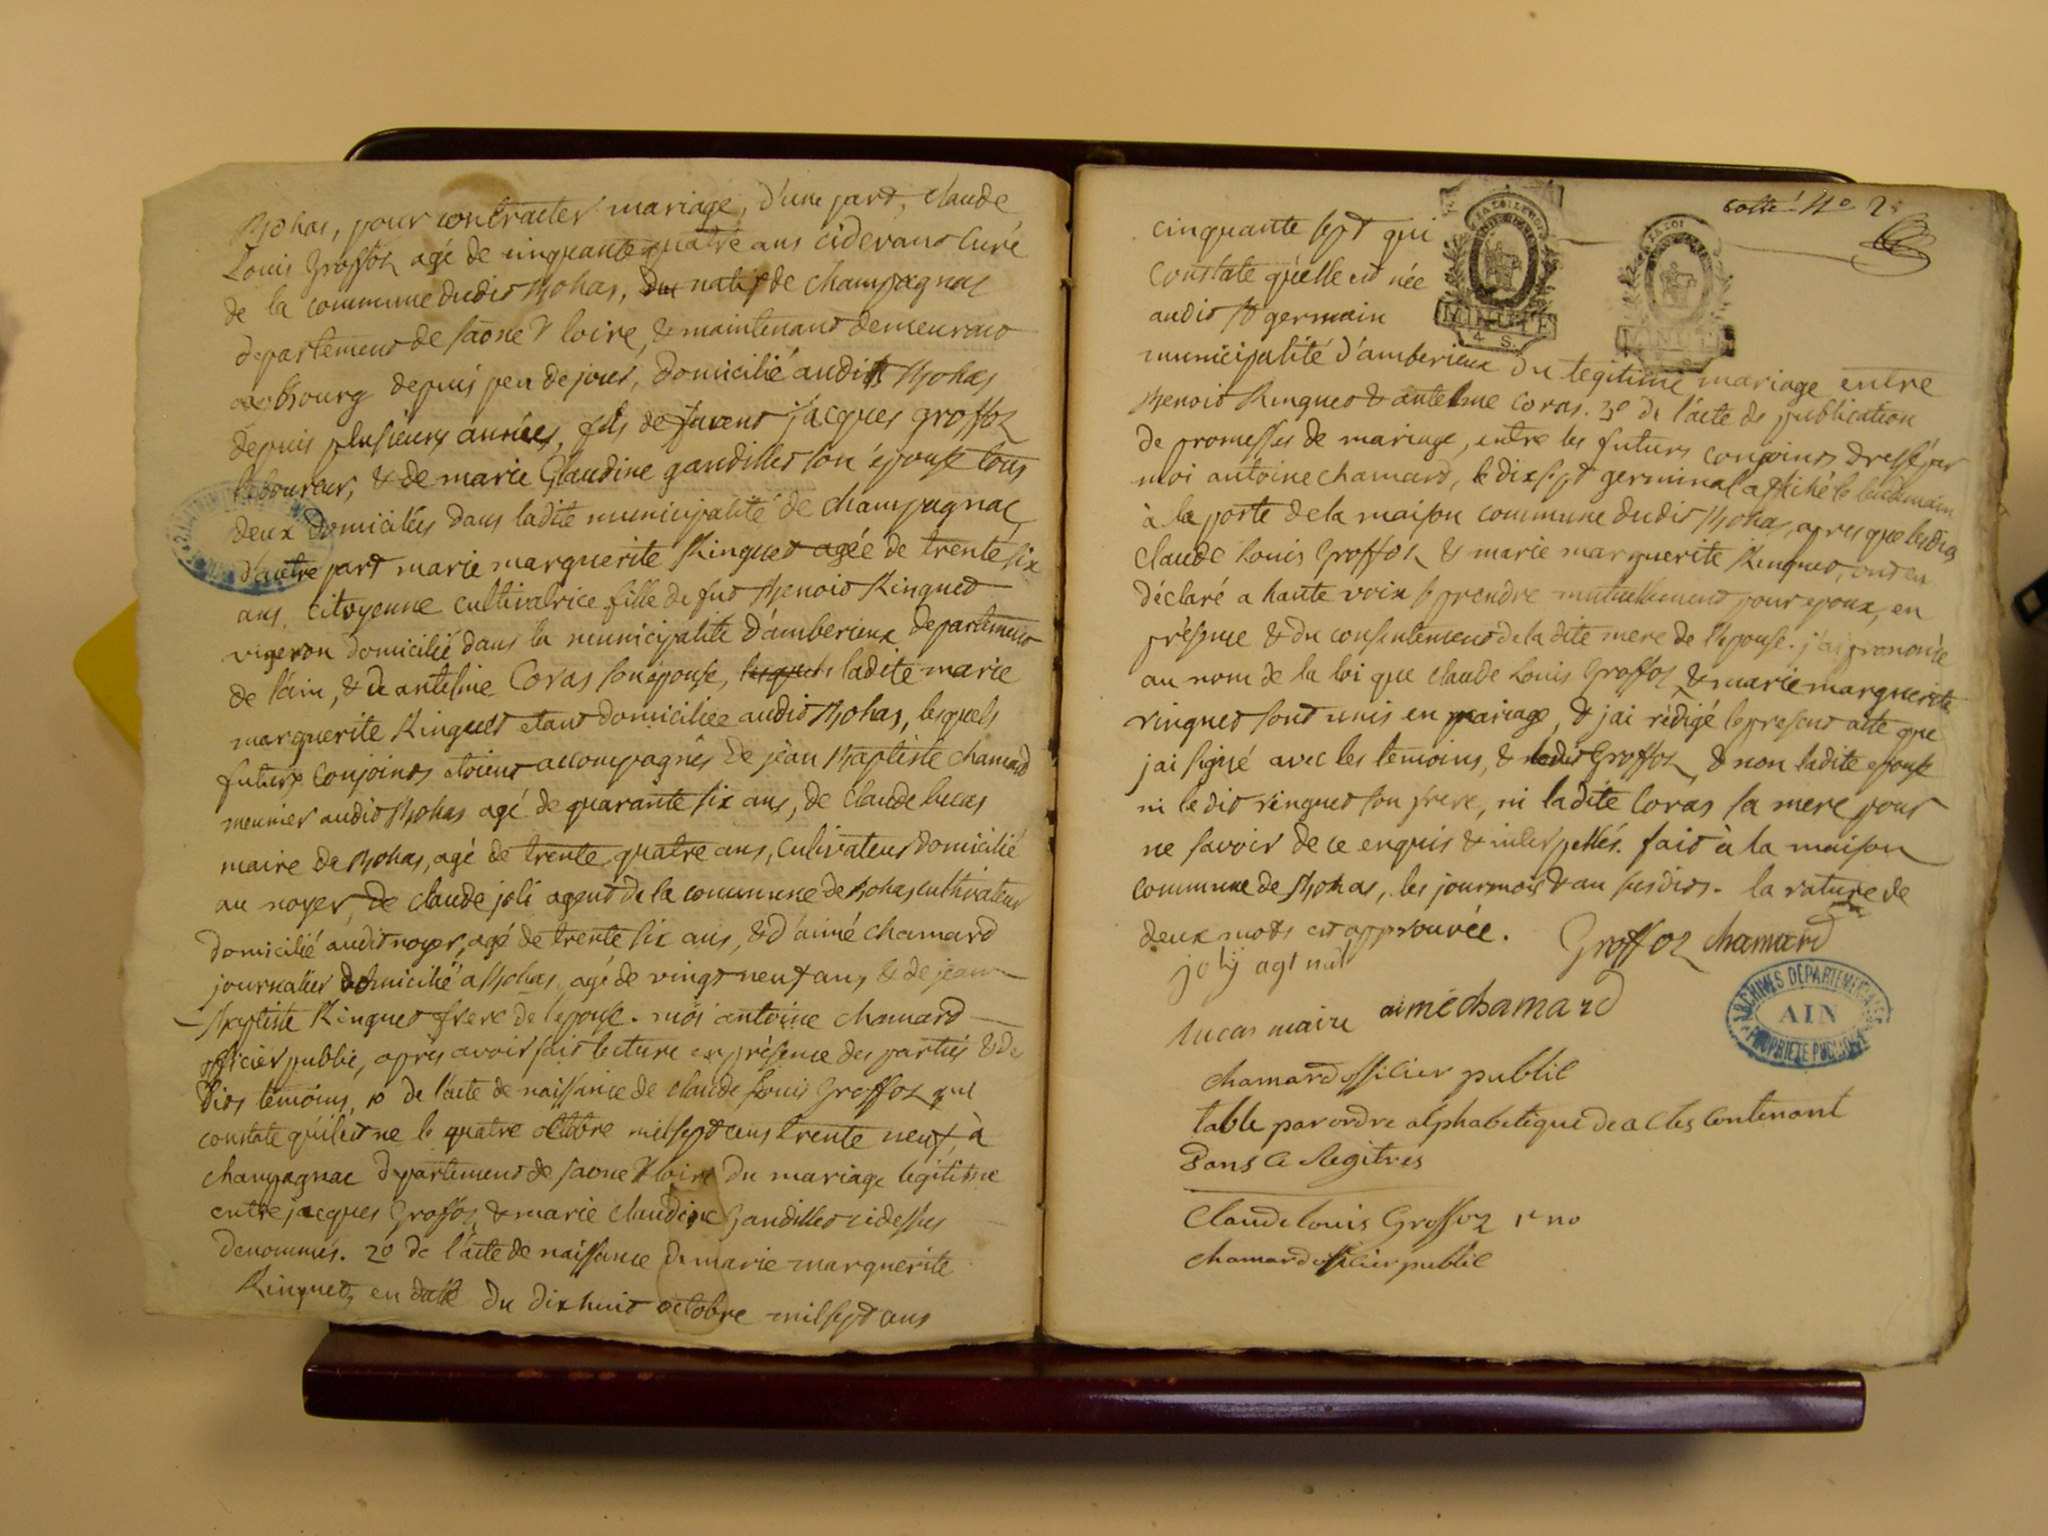 Bohas, pour contracter mariage, d'une part, claude
Louis Groffoz agé de cinquante quatre ans cidevant Curé
de la commune dudit Bohas, natif de champagnac
departement de saone & loire, & maintenant demeurant
bourg depuis peu de jour, domicilié audit Bohas
depuis plusieurs années, fils de jacques groffoz
laboureur, & de marie Claudine gandillet son épouse tous
deux domiciliés dans ladite municipalité de champagnac
d'autre part marie marguerite Ringuet agée de trente six
ans, citoyenne cultivatrice fille de fut Benoit Ringuet
vigeron domicilié dans la municipalité d'amberieux departement
de l'ain, & de antelme Coras son épouse, ladite marie
marguerite Ringuet etant domiciliée audit Bohas, lesquels
futurs conjoints etoient accompagnés de jean Baptiste chamard
meunier audit Bohas agé de quarante six ans, de Claude lucas
maire de Bohas, agé de trente quatre ans, cultivateur domicilié
au noyer, de claude joli agent de la commune de Bohas cultivateur
domicilié audit noyer, agé de trente six ans, & d'aimé chamard
journalier domicilié a Bohas, agé de vingt neuf ans & de jean
Baptiste Ringuet frere de l'epouse. moi antoine chamard
officier public, après avoir fait lecture en présence des parties & des
dits temoins, 1o de l'acte de naissance de claude Louis Groffoz qui
constate qu'il est né le quatre octobre mil sept cens trente neuf à
champagnac departement de saone & loire du mariage légitime
entre jacques Groffoz, & marie claudine Gandillet cidessus
denommés. 2o de l'acte de naissance de marie marguerite
Ringuet, en datte du dix huit octobre mil sept cens
cotté No 2
cinquante sept qui
constate qu'elle est née
audit St germain
municipalité d'amberieux du legitime mariage entre
Benoit Ringuet & antelme coras. 3o de l'acte de publication
de promesses de mariage, entre les futurs conjoints dressé par
moi antoine chamard, le dix sept germinal affiché le lendemain
à la porte de la maison commune dudit Bohas, apres que lesdits
Claude Louis Groffoz & marie marguerite Ringuet, ont eu
déclaré a haute voix se prendre mutuellement pour epoux, en
présence & du consentement de la dite mere de l'epouse. j'ai prononcé
au nom de la loi que claude Louis Groffoz & marie marguerite
ringuet sont unis en mariage, & jai rédigé le present acte que
jai signé avec les temoins, & ledit Groffoz, & non ladite epouse
ni le dit ringuet son frere, ni ladite Coras sa mere pour
ne savoir de ce enquis & interpellés. fait à la maison
commune de Bohas, les jour mois & an susdits. la rature de
deux mots est approuvée.
Groffoz chamard
joly agt nāl
lucas maire aimé chamard
chamard officier public
table par ordre alphabetique de actes Contenant
Dans le Regitres
Claude louis Groffoz 1r no
chamard officier public
LA LOI
MINUTE
4 S.
LA LOI
MINUTE
ARCHIVES DÉPARTEMENTALES
AIN
PROPRIETE PUBLIQUE